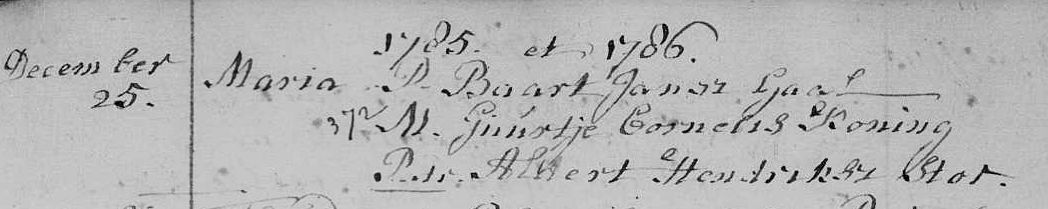 1785. et 1786.
December Maria P. Baart Jansz Gaal
25. M. Guurtje Cornelis Koning
P.tr. Albert Hendriksz Stor.